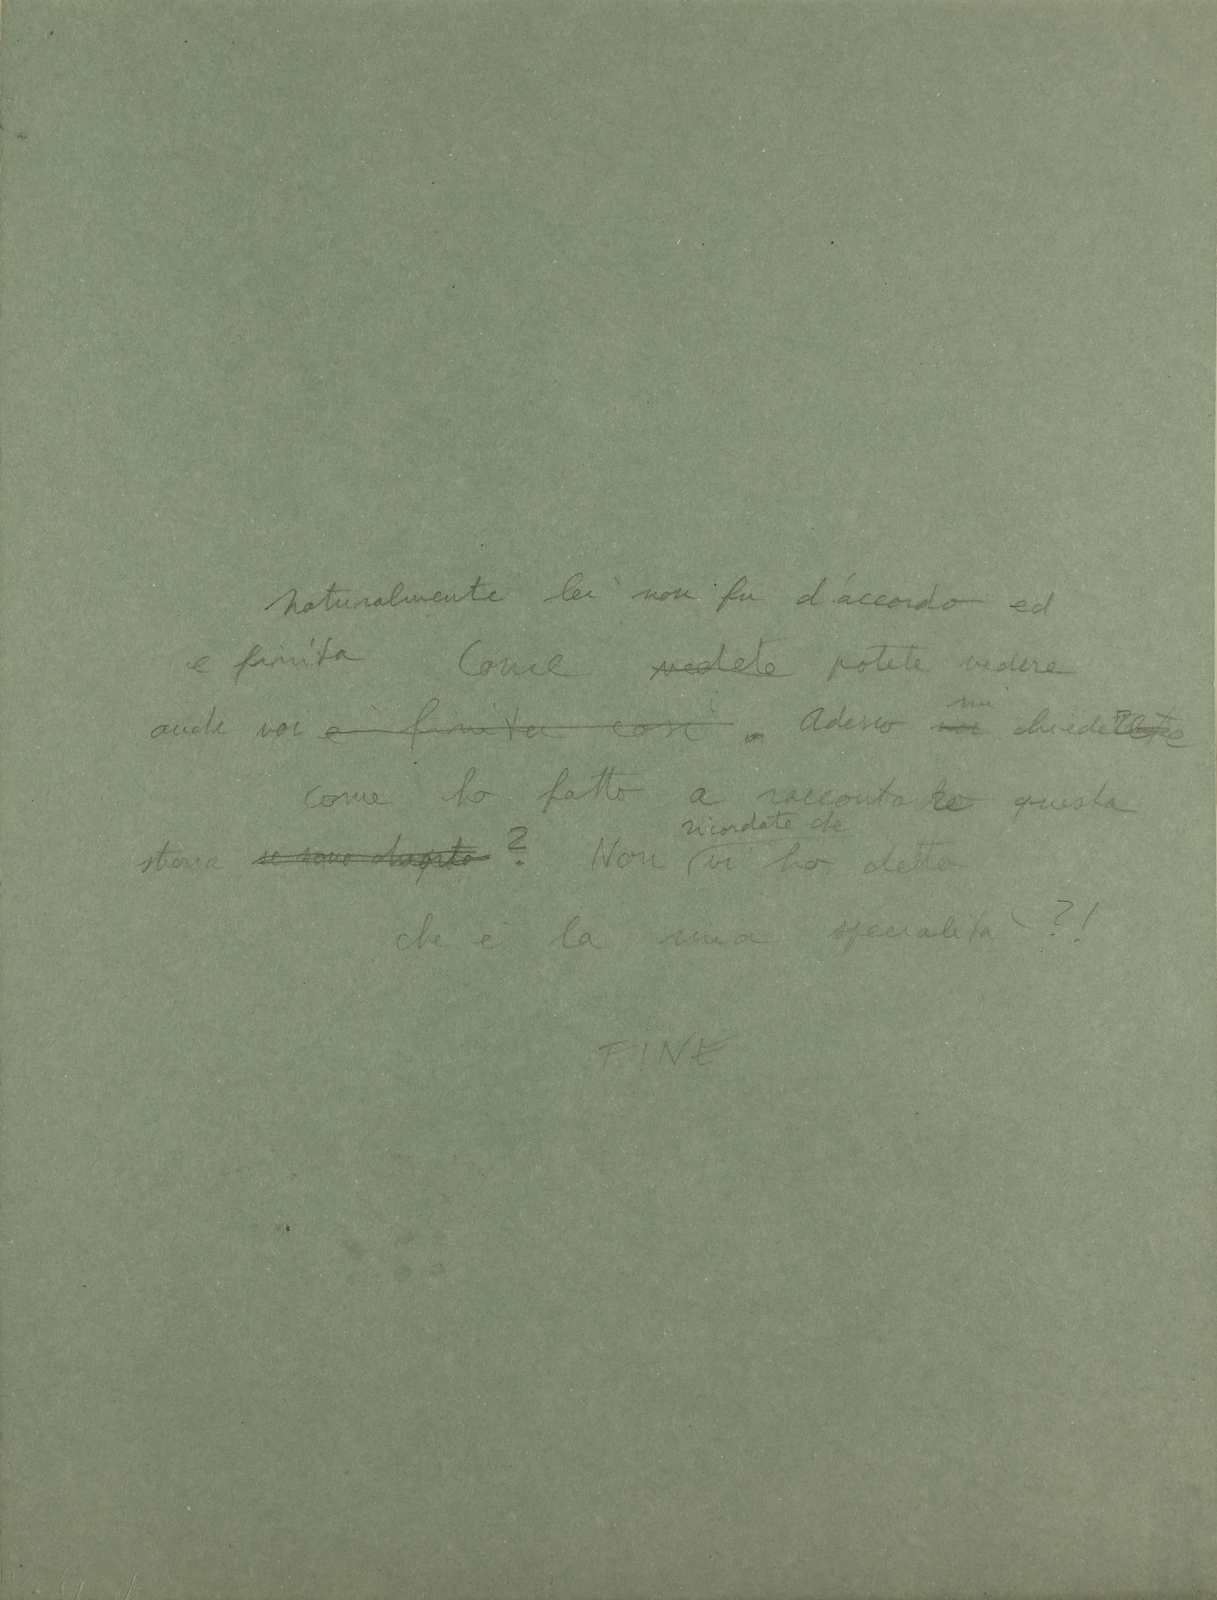 naturalmente lei non fu d'accordo ed
e finita Come vedete potete vedere
anche voi è finita così. Adesso mi chiederete
come ho fatto a raccontare questa
storia se sono ? Non ricordate che vi ho detto
che è la mia specialità?!
FINE